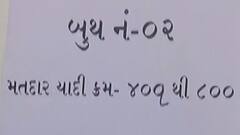 બુથ નં-૦૨
મતદાર યાદી ક્રમ- ૪૦૧ થી ૮૦૦